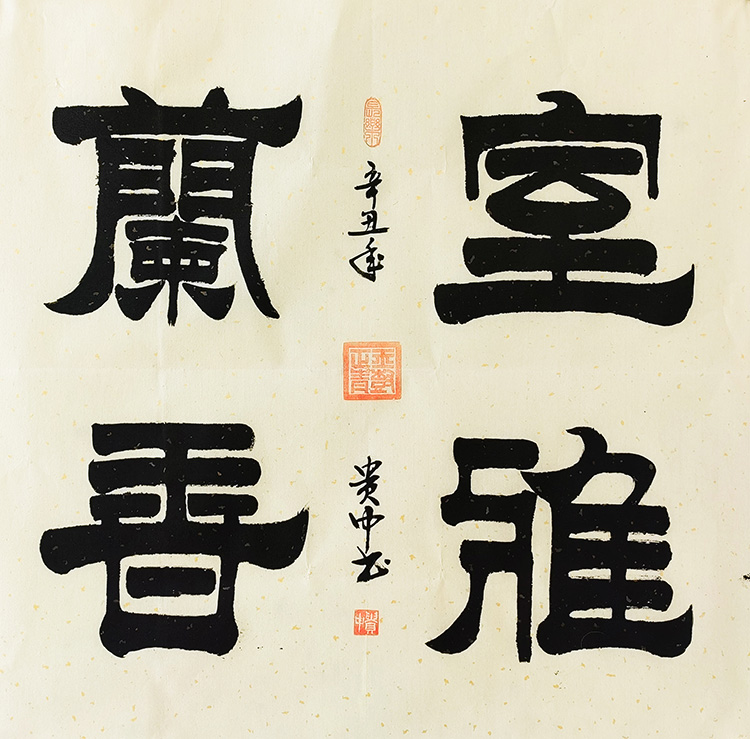 室雅
蘭香
辛丑年
贵中书
貴中